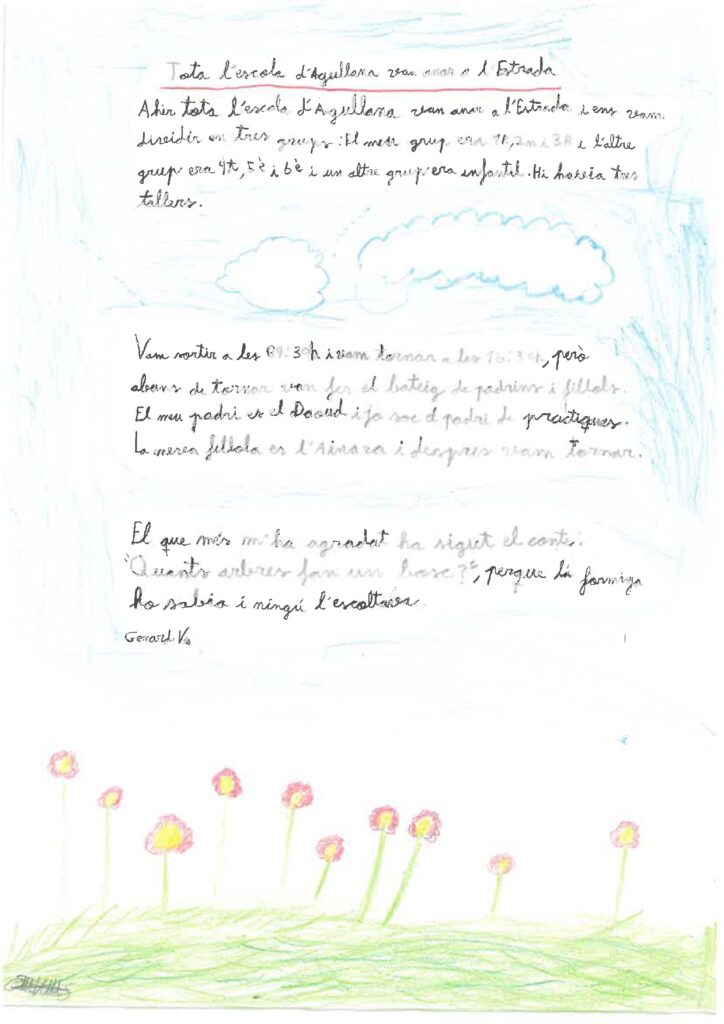 Tota l'escola d'Agullana vam anar a l'Estrada
Ahir tota l'escola d'Agullana vam anar a l'Estrada i ens vam
dividir en tres grups: El meu grup era 1R, 2n i 3R i l'altre
grup era 4t, 5è i 6è i un altre grup era infantil. Hi havia tres
tallers.
Vam sortir a les 09:30h i vam tornar a les 16:30h, però
abans de tornar vam fer el bateig de padrins i fillols.
El meu padrí es el Daoud i jo soc el padrí de pràctiques.
La meva fillola es l'Ainara i despres vam tornar.
El que més m'ha agradat ha sigut el conte:
"Quants arbres fan un bosc?", perque la formiga
ho sabia i ningú l'escoltava.
Gerard V.